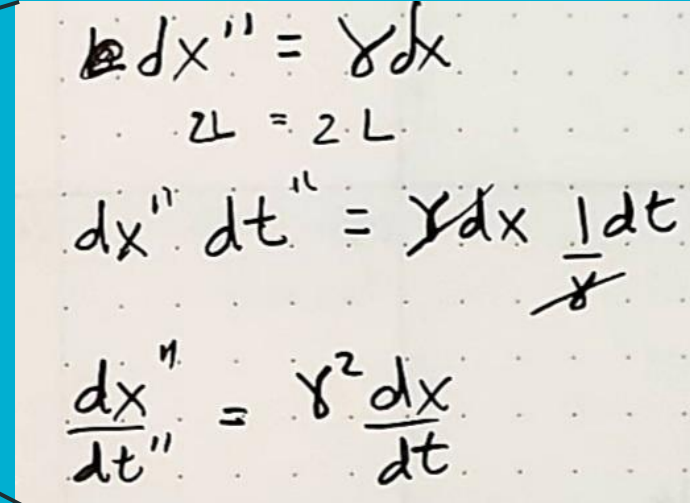 dx" = γdx
2L = 2.L.
dx" dt" = γdx 1/γ dt
dx"/dt" = γ² dx/dt